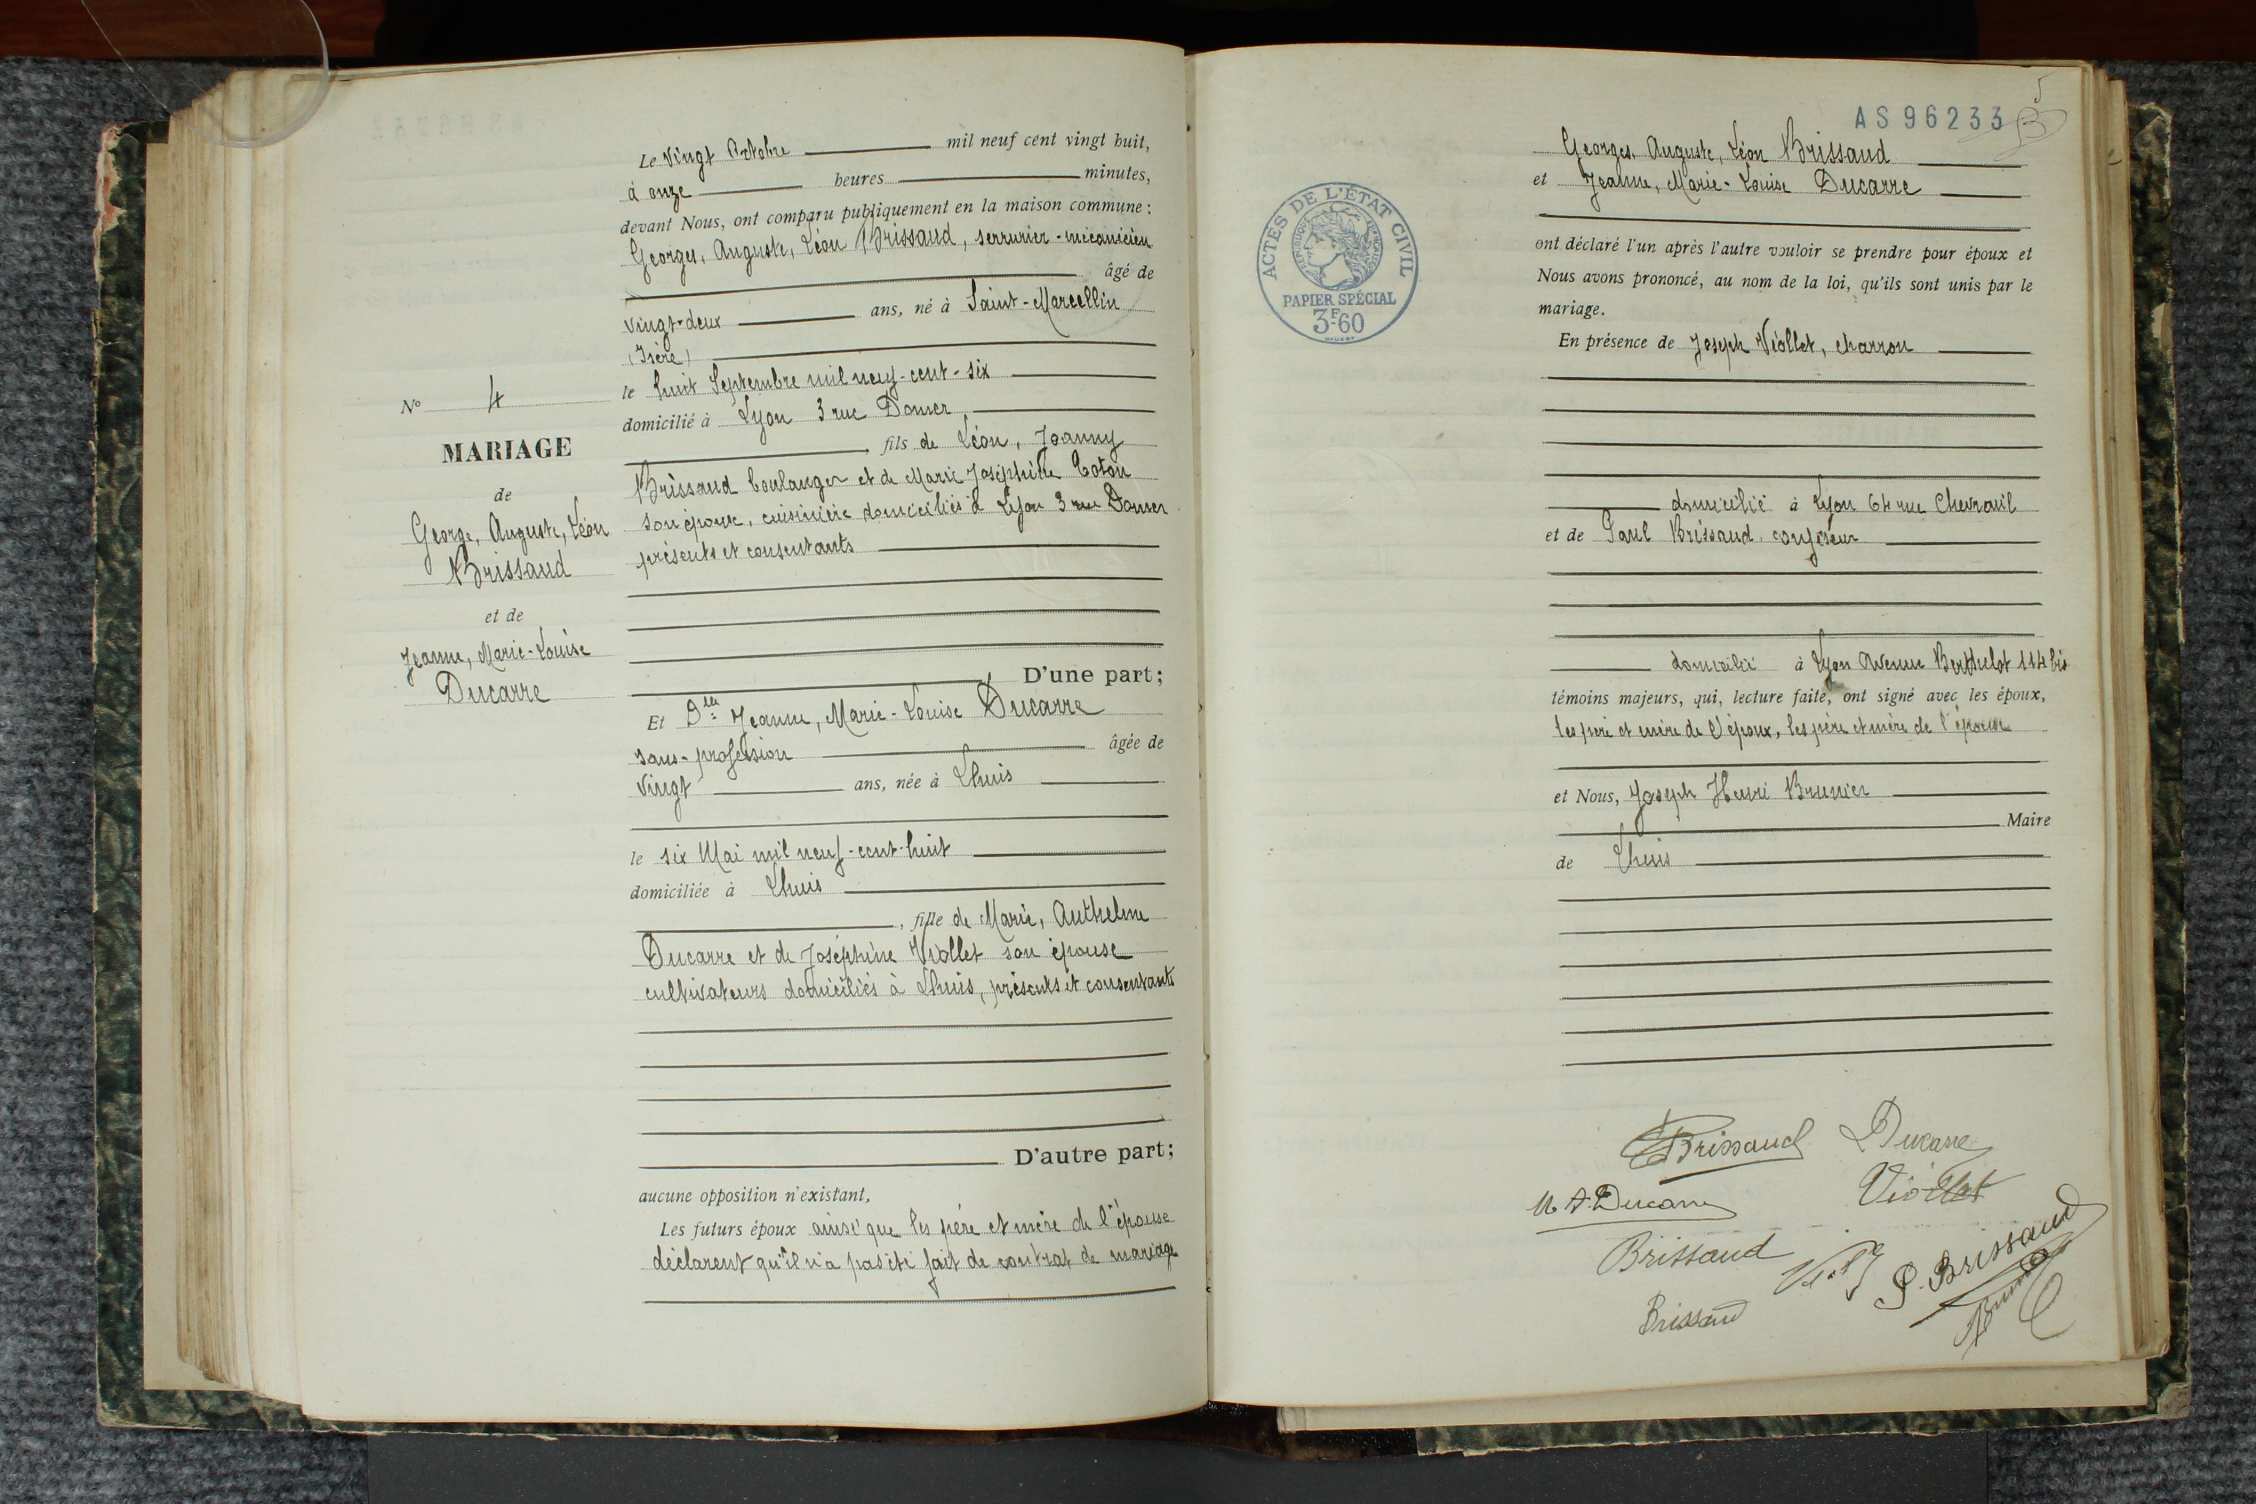 Le vingt Octobre mil neuf cent vingt huit,
à onze heures minutes,
devant Nous, ont comparu publiquement en la maison commune :
Georges, Auguste, Léon Brissaud, serrurier-mécanicien
âgé de
vingt-deux ans, né à Saint-Marcellin
(Isère)
le huit Septembre mil neuf-cent-six
domicilié à Lyon 3 rue Domer
fils de Léon, Joanny
Brissaud boulanger et de Marie Joséphine Coton
son épouse, cuisinière domiciliés à Lyon 3 rue Domer
présents et consentants
D'une part;
N° 4
MARIAGE
de
George, Auguste, Léon
Brissaud
et de
Jeanne, Marie-Louise
Ducarre
Et Dlle Jeanne, Marie-Louise Ducarre
sans-profession âgée de
vingt ans, née à Lhuis
le six Mai mil neuf-cent-huit
domiciliée à Lhuis
, fille de Marie, Anthelme
Ducarre et de Joséphine Viollet son épouse
cultivateurs domiciliés à Lhuis, présents et consentants
D'autre part;
aucune opposition n'existant,
Les futurs époux ainsi que les père et mère de l'épouse
déclarent qu'il n'a pas été fait de contrat de mariage
5
AS 96233
ACTES DE L'ÉTAT CIVIL
RÉPUBLIQUE FRANÇAISE
PAPIER SPÉCIAL
3F60
Georges, Auguste, Léon Brissaud
et Jeanne, Marie-Louise Ducarre
ont déclaré l'un après l'autre vouloir se prendre pour époux et
Nous avons prononcé, au nom de la loi, qu'ils sont unis par le
mariage.
En présence de Joseph Viollet, charron
domicilié à Lyon 64 rue Chevreuil
et de Paul Brissaud, confiseur
domicilié à Lyon Avenue Berthelot 114 bis
témoins majeurs, qui, lecture faite, ont signé avec les époux,
les père et mère de l'époux, les père et mère de l'épouse
et Nous, Joseph Henri Brunier
Maire
de Lhuis
Brissaud Ducarre
M A Ducarre Viollet
Brissaud P. Brissaud
Brissaud